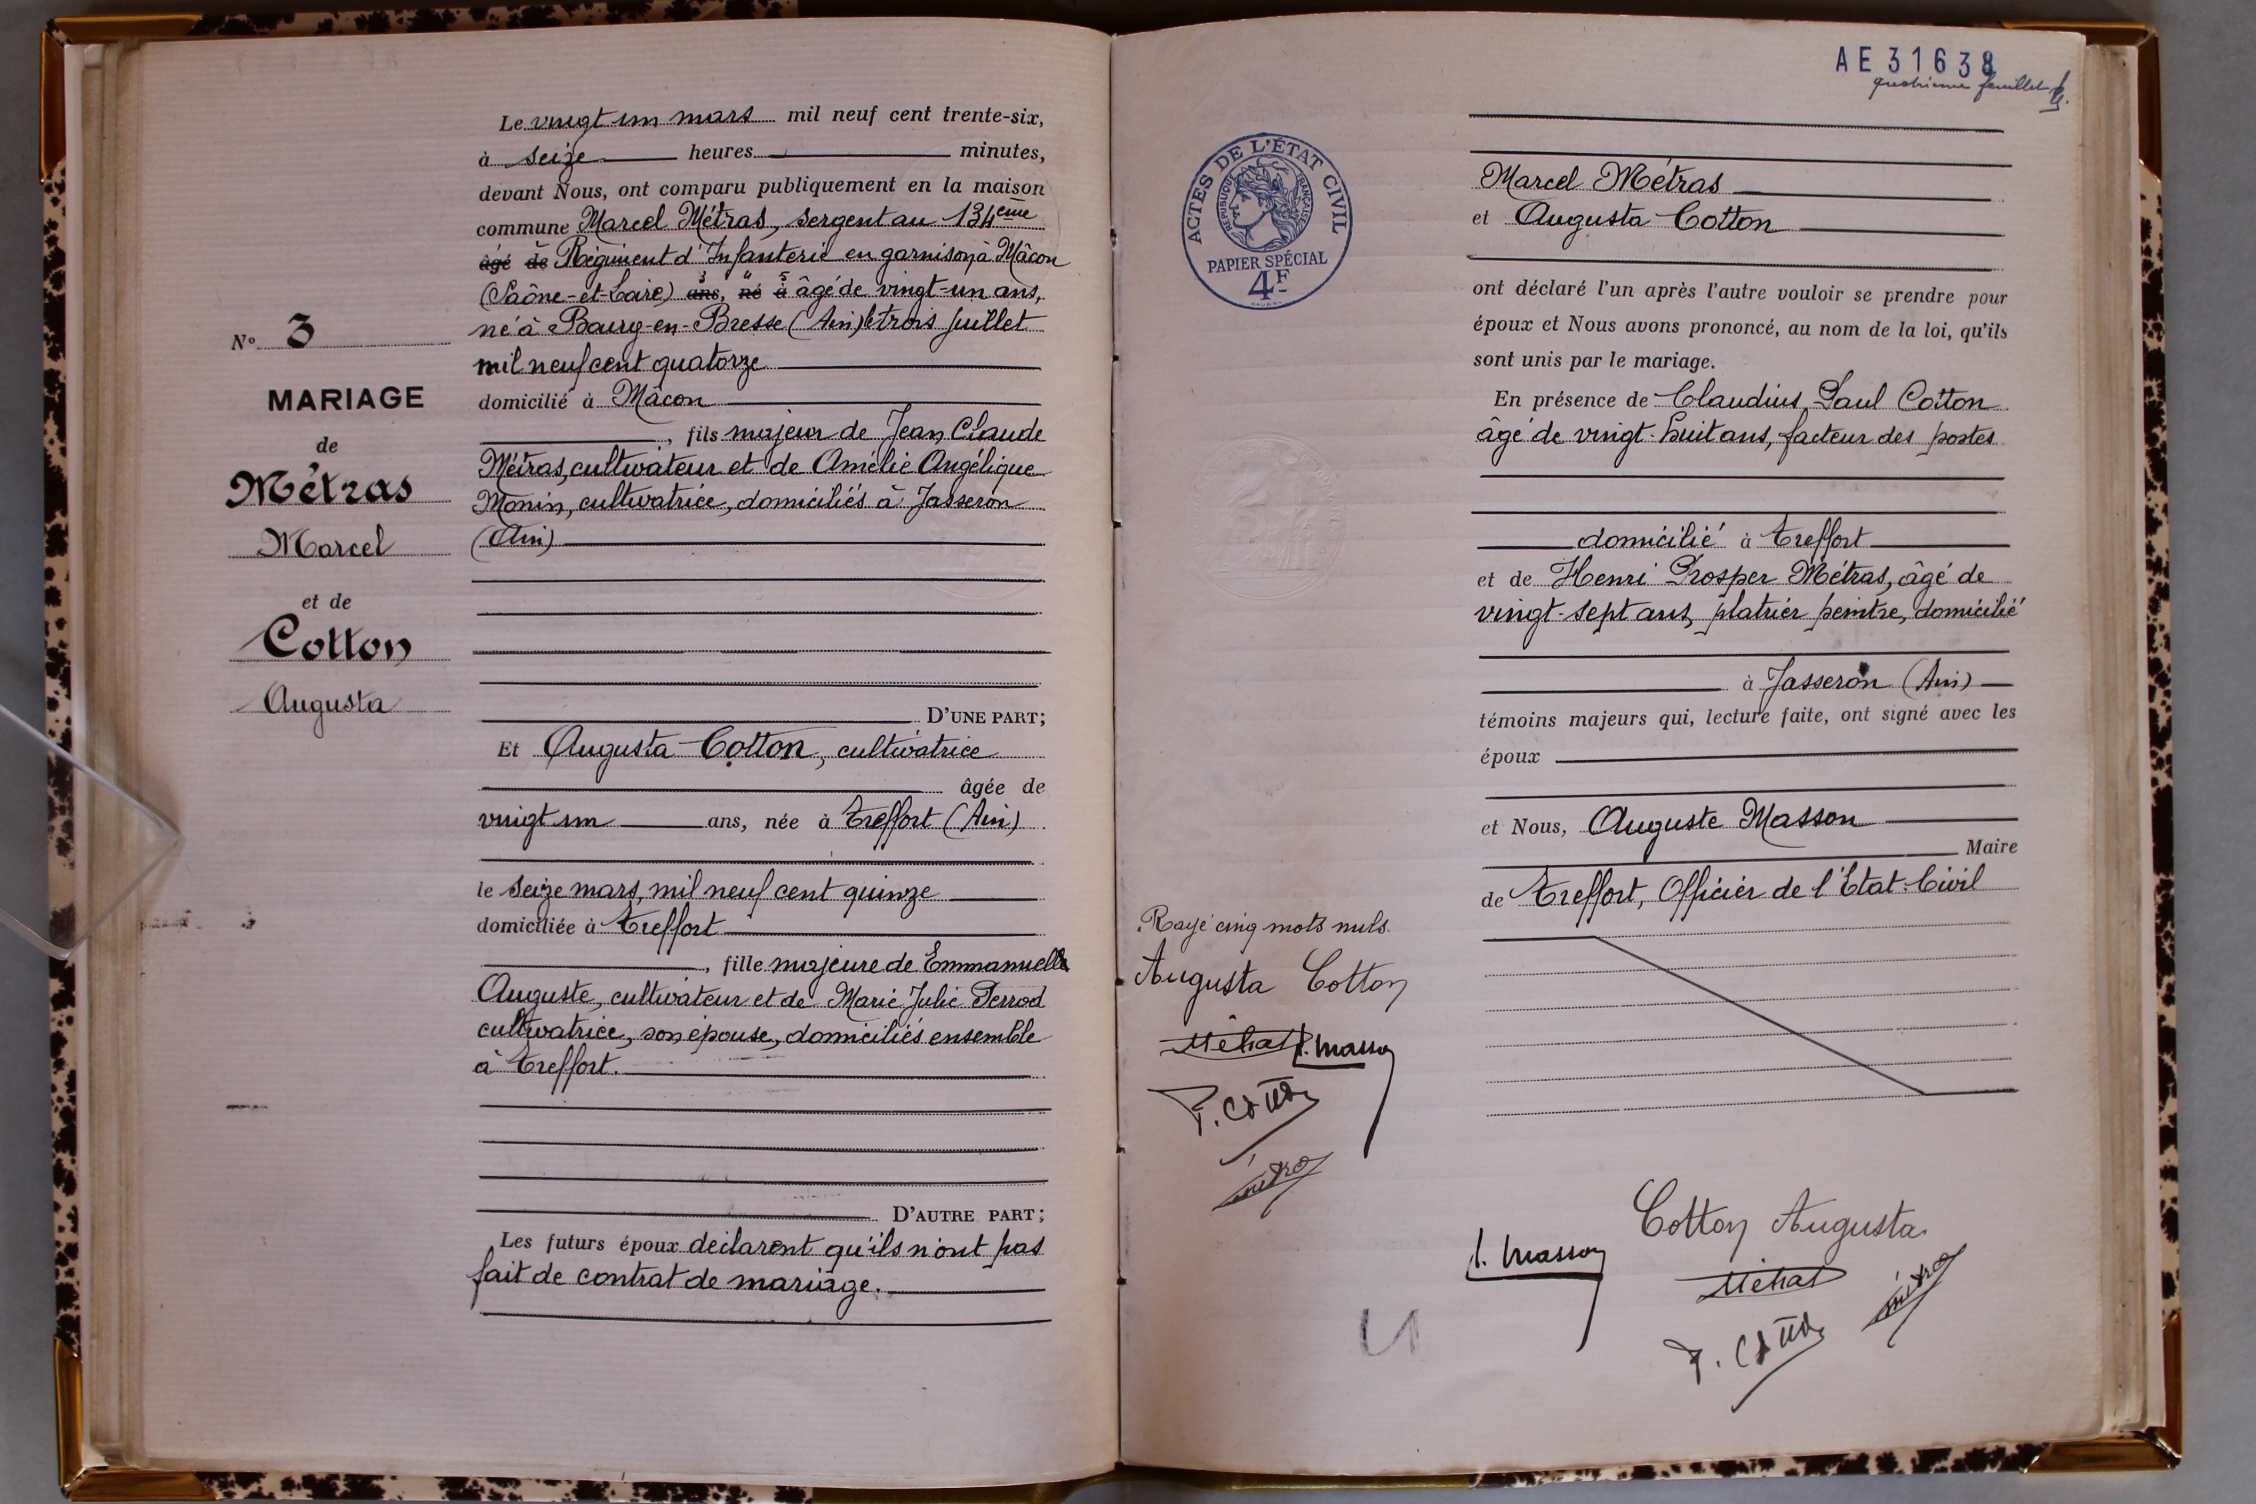 Le vingt un mars mil neuf cent trente-six,
à seize heures minutes,
devant Nous, ont comparu publiquement en la maison
commune Marcel Métras, sergent au 134eme
âgé de Régiment d'Infanterie en garnison à Mâcon
(Saône-et-Loire) ans, né à âgé de vingt-un ans,
né à Bourg-en-Bresse (Ain) le trois juillet
mil neuf cent quatorze
domicilié à Mâcon
, fils majeur de Jean Claude
Métras, cultivateur et de Amélie Angélique
Monin, cultivatrice, domiciliés à Jasseron
(Ain)
D'UNE PART;
Et Augusta Cotton, cultivatrice
âgée de
vingt un ans, née à Treffort (Ain)
le seize mars, mil neuf cent quinze
domiciliée à Treffort
, fille majeure de Emmanuelle
Auguste, cultivateur et de Marie Julie Perrod
cultivatrice, son épouse, domiciliés ensemble
à Treffort.
D'AUTRE PART;
Les futurs époux déclarent qu'ils n'ont pas
fait de contrat de mariage.
No 3
MARIAGE
de
Métras
Marcel
et de
Cotton
Augusta
AE 31638
quatrième feuillet
ACTES DE L'ÉTAT CIVIL
RÉPUBLIQUE FRANÇAISE
PAPIER SPÉCIAL
4F
Marcel Métras
et Augusta Cotton
ont déclaré l'un après l'autre vouloir se prendre pour
époux et Nous avons prononcé, au nom de la loi, qu'ils
sont unis par le mariage.
En présence de Claudius, Paul Cotton
âgé de vingt-huit ans, facteur des postes
domicilié à Treffort
et de Henri Prosper Métras, âgé de
vingt-sept ans, platrier peintre, domicilié
à Jasseron (Ain)
témoins majeurs qui, lecture faite, ont signé avec les
époux
et Nous, Auguste Masson
Maire
de Treffort, Officier de l'Etat-Civil
Rayé cinq mots nuls.
Augusta Cotton
Métras A. Masson
P. Cotton
Métras
Cotton Augusta
A. Masson
Métras
Métras
P. Cotton